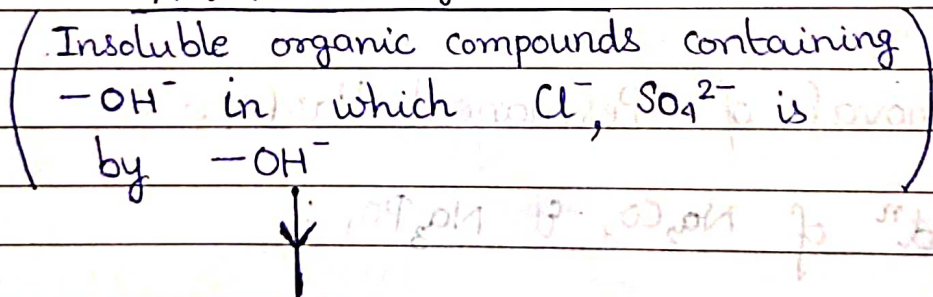 Insoluble organic compounds containing
-OH⁻ in which Cl⁻, SO₄²⁻ is
by -OH⁻